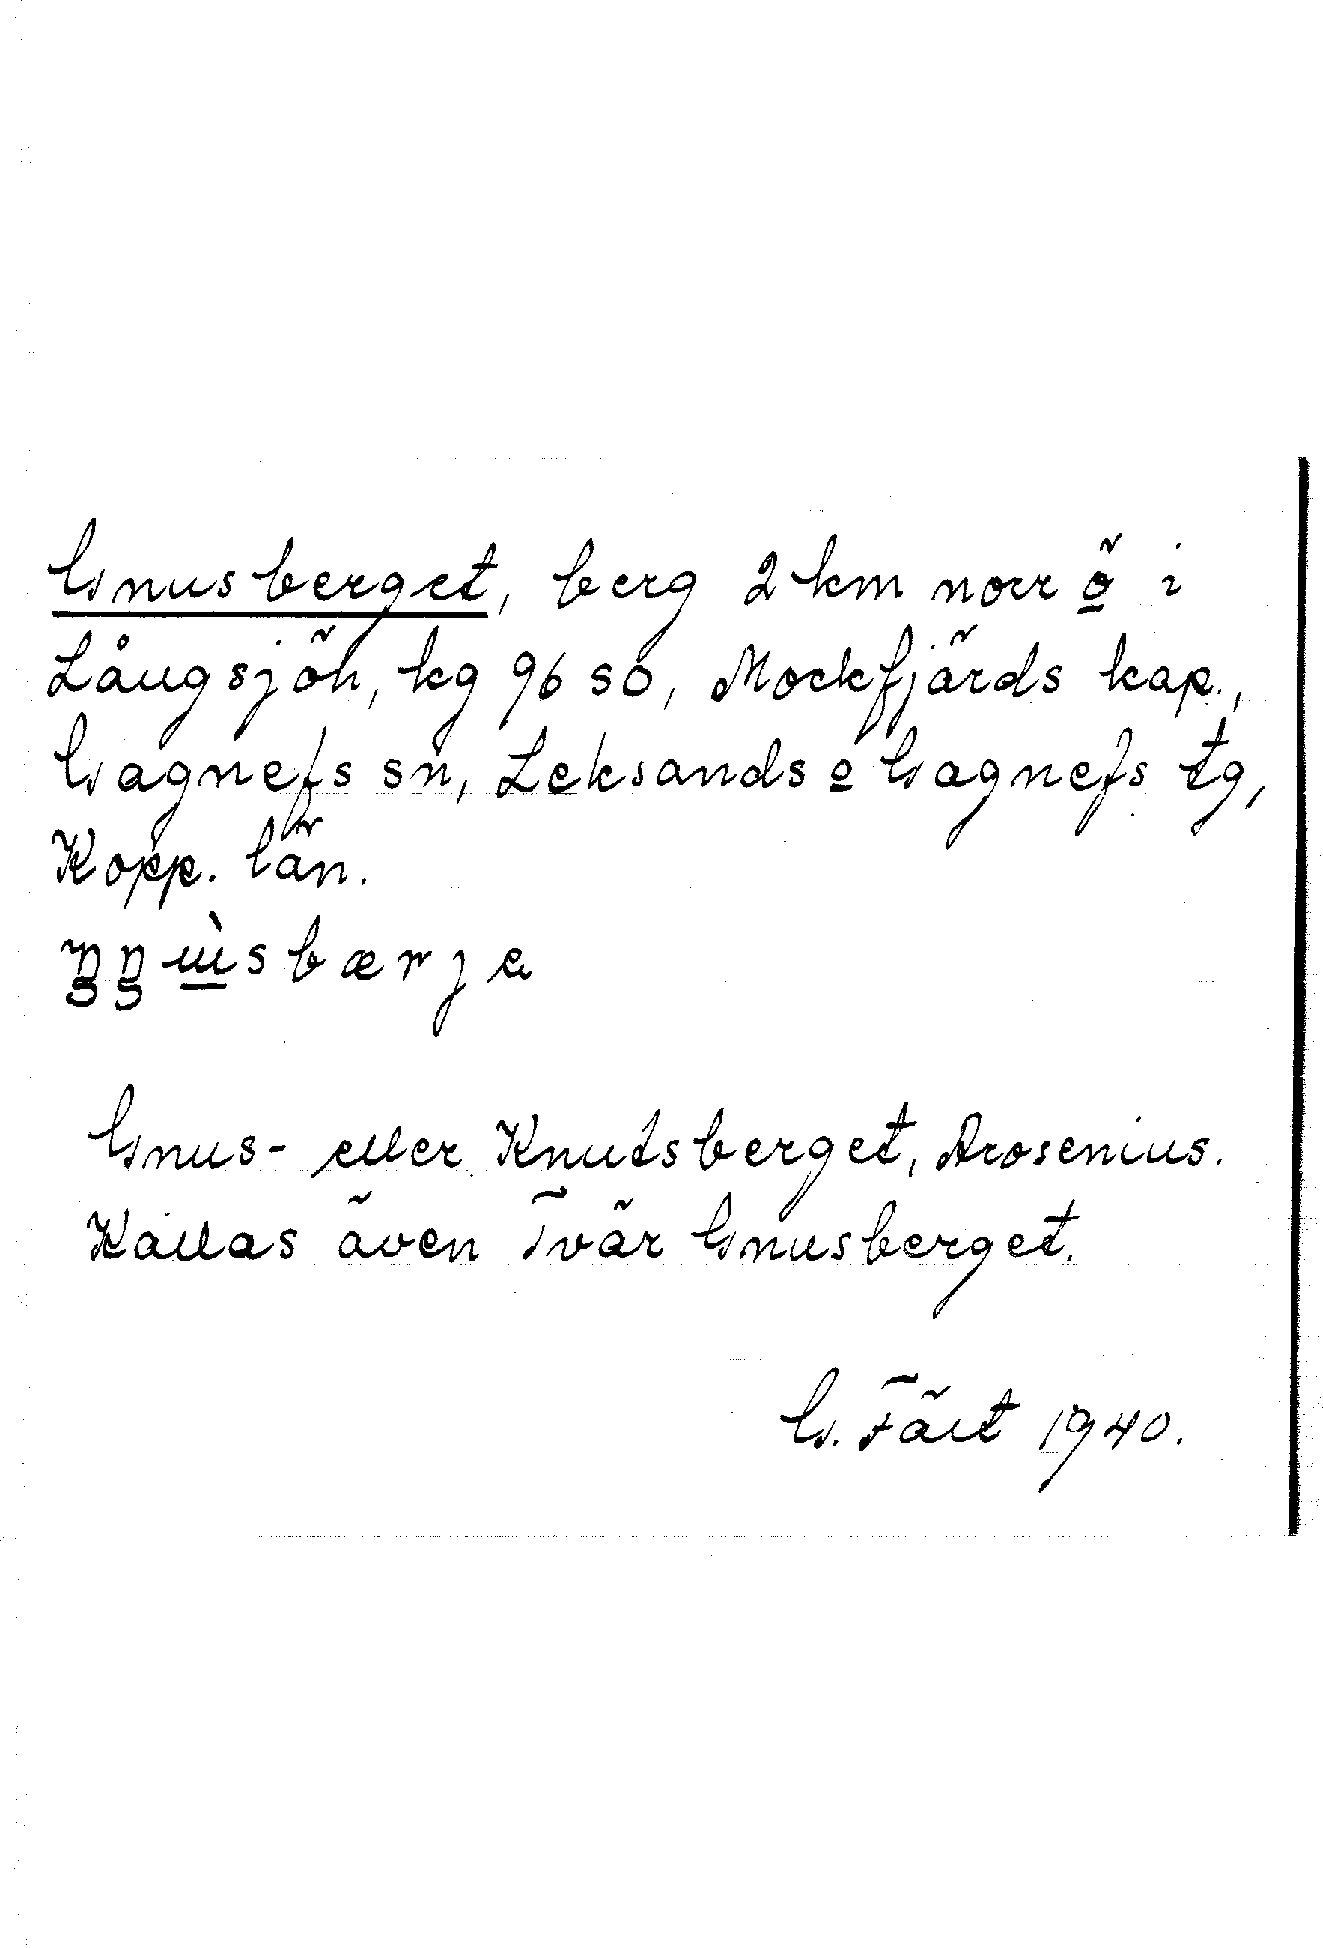 Gnusberget, berg 2 km norr ö i
Långsjön, kg 96 SO, Mockfjärds kap.,
Gagnefs sn, Leksands o Gagnefs tg,
Kopp. län.
Gnus- eller Knutsberget, Arosenius.
Kallas även Tvär Gnusberget.
G. Fält 1940.